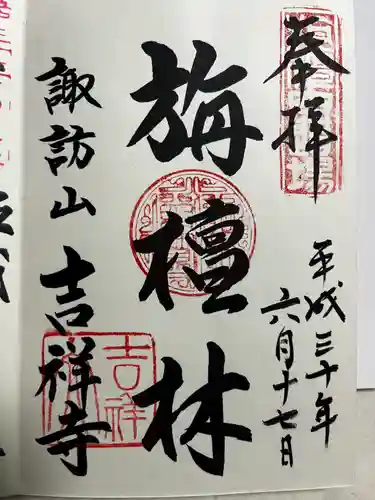 奉拝
平成三十年
六月十七日
旃檀林
諏訪山 吉祥寺
吉祥